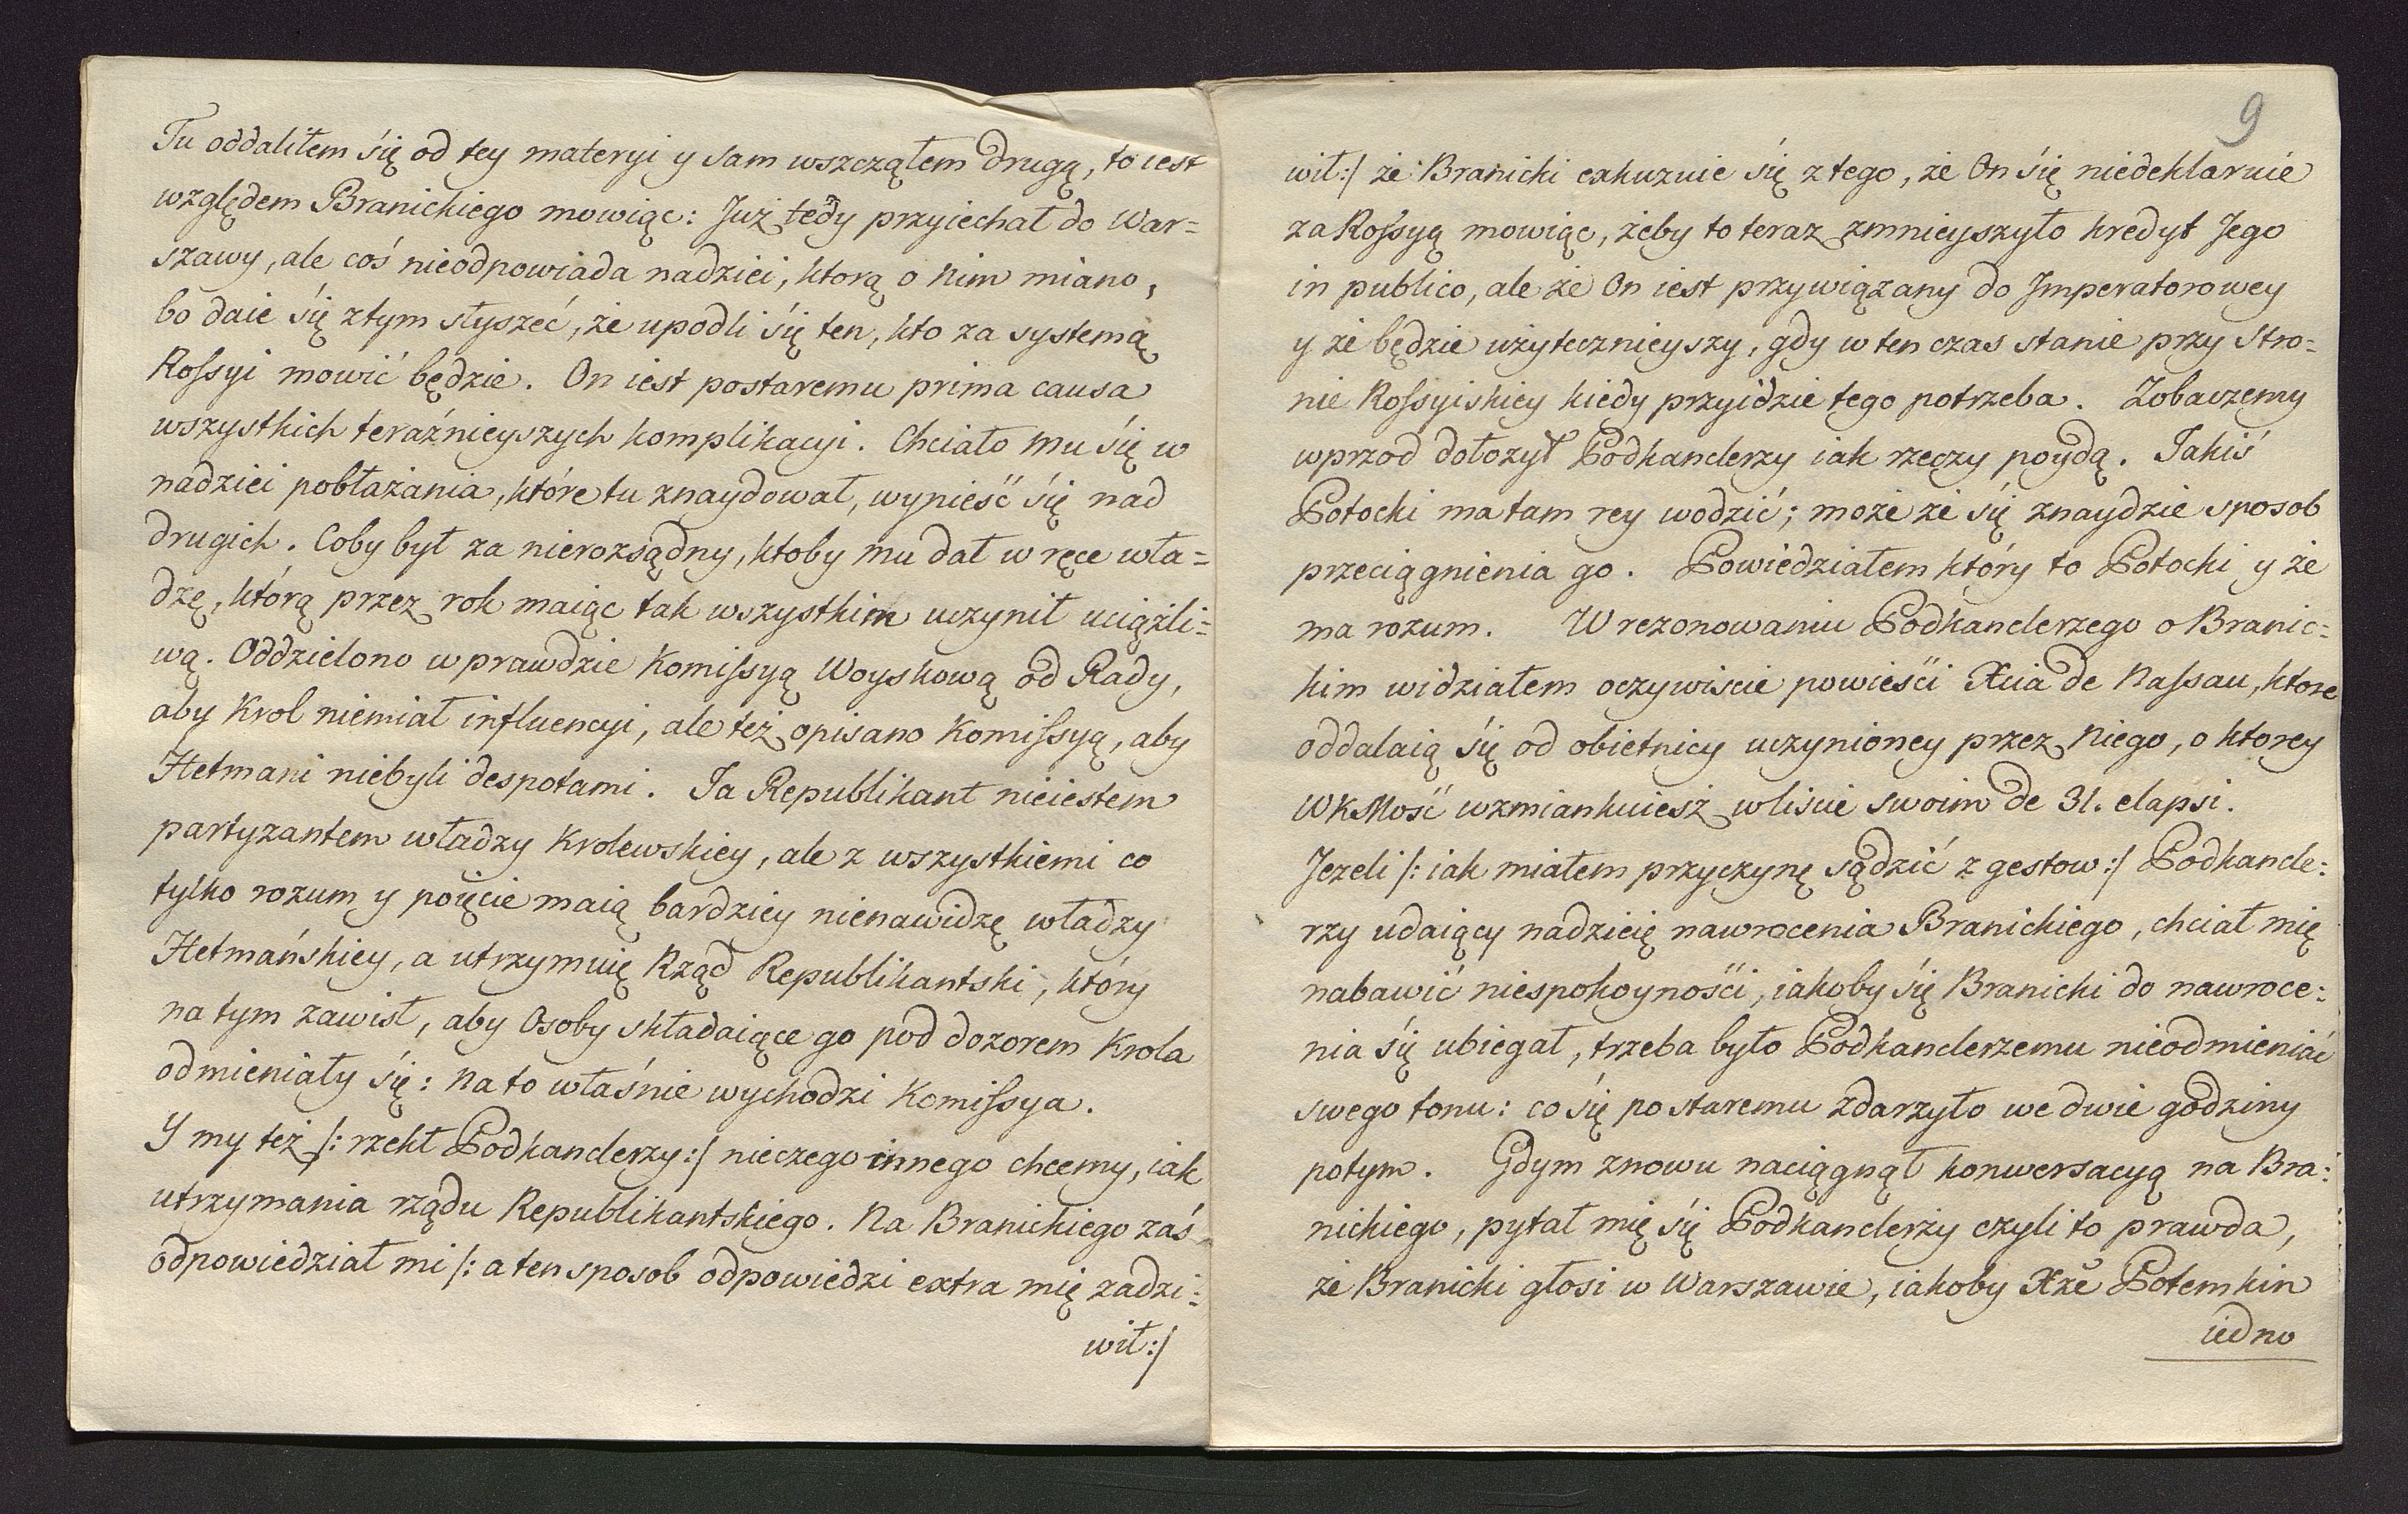 Tu oddaliłem się od tey materyi y sam wszcząłem drugą, to iest
względem Branickiego mowiąc: Już tedy przyiechał do War=
szawy, ale coś nieodpowiada nadziei, ktorą o Nim miano,
bo daie się z tym słyszeć, że upodli się ten, kto za systemą
Rossyi mowić będzie. On iest postaremu prima causa
wszystkich teraźnieyszych komplikacyi. Chciało mu się w
nadziei pobłażania, które tu znaydował, wynieść się nad
drugich. Coby był za nierozsądny, ktoby mu dał w ręce wła=
dzę, którą przez rok maiąc tak wszystkim uczynił uciążli=
wą. Oddzielono w prawdzie Komissyą Woyskową od Rady,
aby Krol niemiał influencyi, ale też opisano Komissyą, aby
Hetmani niebyli despotami. Ja Republikant nieiestem
partyzantem władzy Krolewskiey, ale z wszystkiemi co
tylko rozum y poięcie maią bardziey nienawidzę władzy
Hetmańskiey, a utrzymuię Rząd Republikantski, który
na tym zawisł, aby Osoby składaiące go pod dozorem Krola
odmieniały się: na to właśnie wychodzi Komissya.
Y my też /: rzekł Podkanclerzy :/ nieczego innego chcemy, iak
utrzymania rządu Republikantskiego. Na Branickiego zaś
odpowiedział mi /: a ten sposob odpowiedzi extra mię zadzi=
wił :/
9
wił :/ że Branicki exkuzuie się z tego, że On się niedeklaruie
za Rossyą mowiąc, żeby to teraz zmnieyszyło kredyt Jego
in publico, ale że On iest przywiązany do Imperatorowey
y że będzie użytecznieyszy, gdy w ten czas stanie przy Stro=
nie Rossyiskiey kiedy przyidzie tego potrzeba. Zobaczemy
wprzod dołożył Podkanclerzy iak rzeczy poydą. Jakiś
Potocki ma tam rey wodzić; może że się znaydzie sposob
przeciągnienia go. Powiedziałem który to Potocki y że
ma rozum. W rezonowaniu Podkanclerzego o Branic=
kim widziałem oczywiscie powieści Xcia de Nassau, ktore
oddalaią się od obietnicy uczynioney przez Niego, o ktorey
WKMość wzmiankuiesz w liście swoim de 31. elapsi.
Jezeli /: iak miałem przyczynę sądzić z gestow :/ Podkancle=
rzy udaiący nadzieię nawrocenia Branickiego, chciał mię
nabawić niespokoyności, iakoby się Branicki do nawroce=
nia się ubiegał, trzeba było Podkanclerzemu nieodmieniać
swego tonu: co się po staremu zdarzyło we dwie godziny
potym. Gdym znowu naciągnął konwersacyą na Bra=
nickiego, pytał mię się Podkanclerzy czyli to prawda,
że Branicki głosi w Warszawie, iakoby Xże Potemkin
iedno